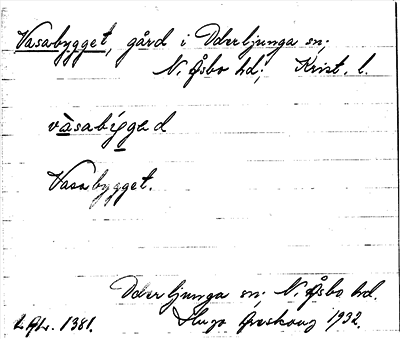 Vasabygget, gård i Oderljunga sn;
N. Åsbo hd; Krist. l.
vàsabýgged
Vasabygget.
Oderljunga sn; N. Åsbo hd.
1381. Hugo Areskoug 1932.